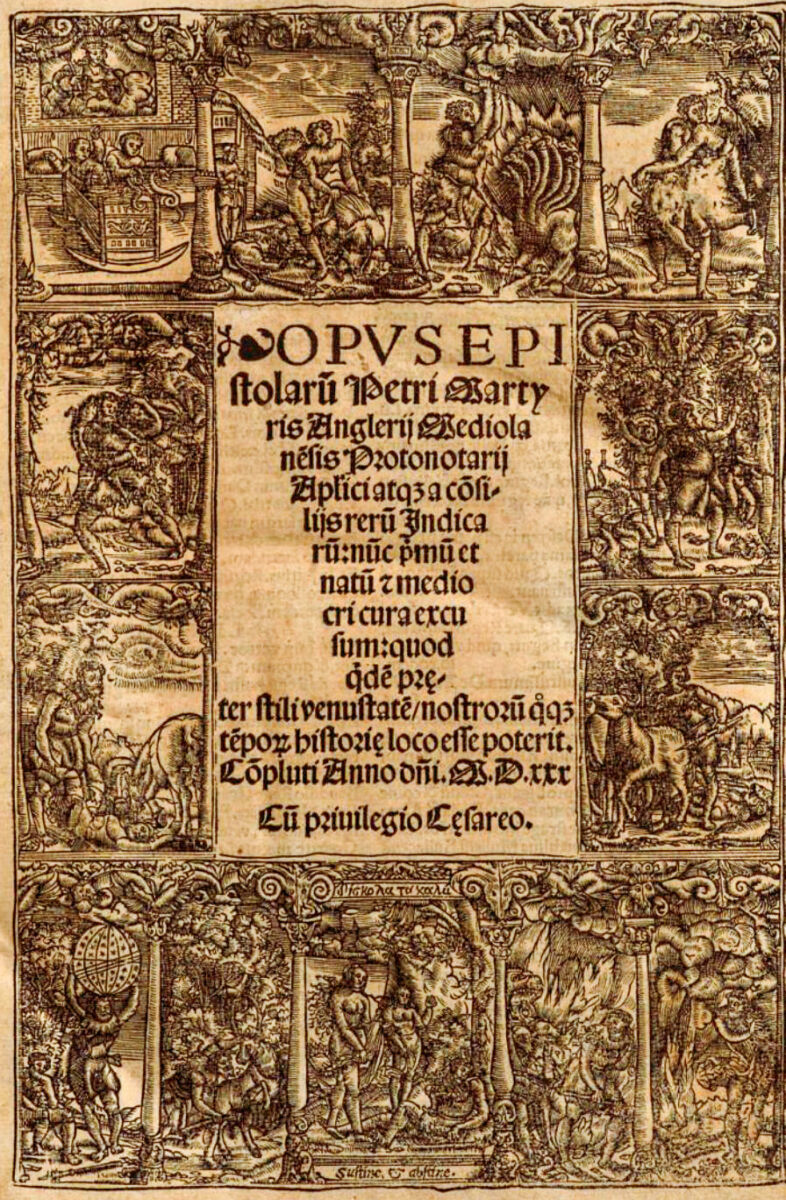 OPVS EPI
stolarũ Petri Marty
ris Anglerij Mediola
nẽsis Protonotarij
Aplici atqꝫ a cõsi-
lijs rerũ Indica
rũ: nũc p̃mũ et
natũ ⁊ medio
cri cura excu
sum: quod
q̃dẽ prę-
ter stili venustatẽ/nostrorũ q̊qꝫ
tẽporꝝ historię loco esse poterit.
Cõpluti Anno dñi. M. D. xxx
Cũ priuilegio Cęsareo.
Δύσκολα τὰ καλά
Sustine, & abstine.